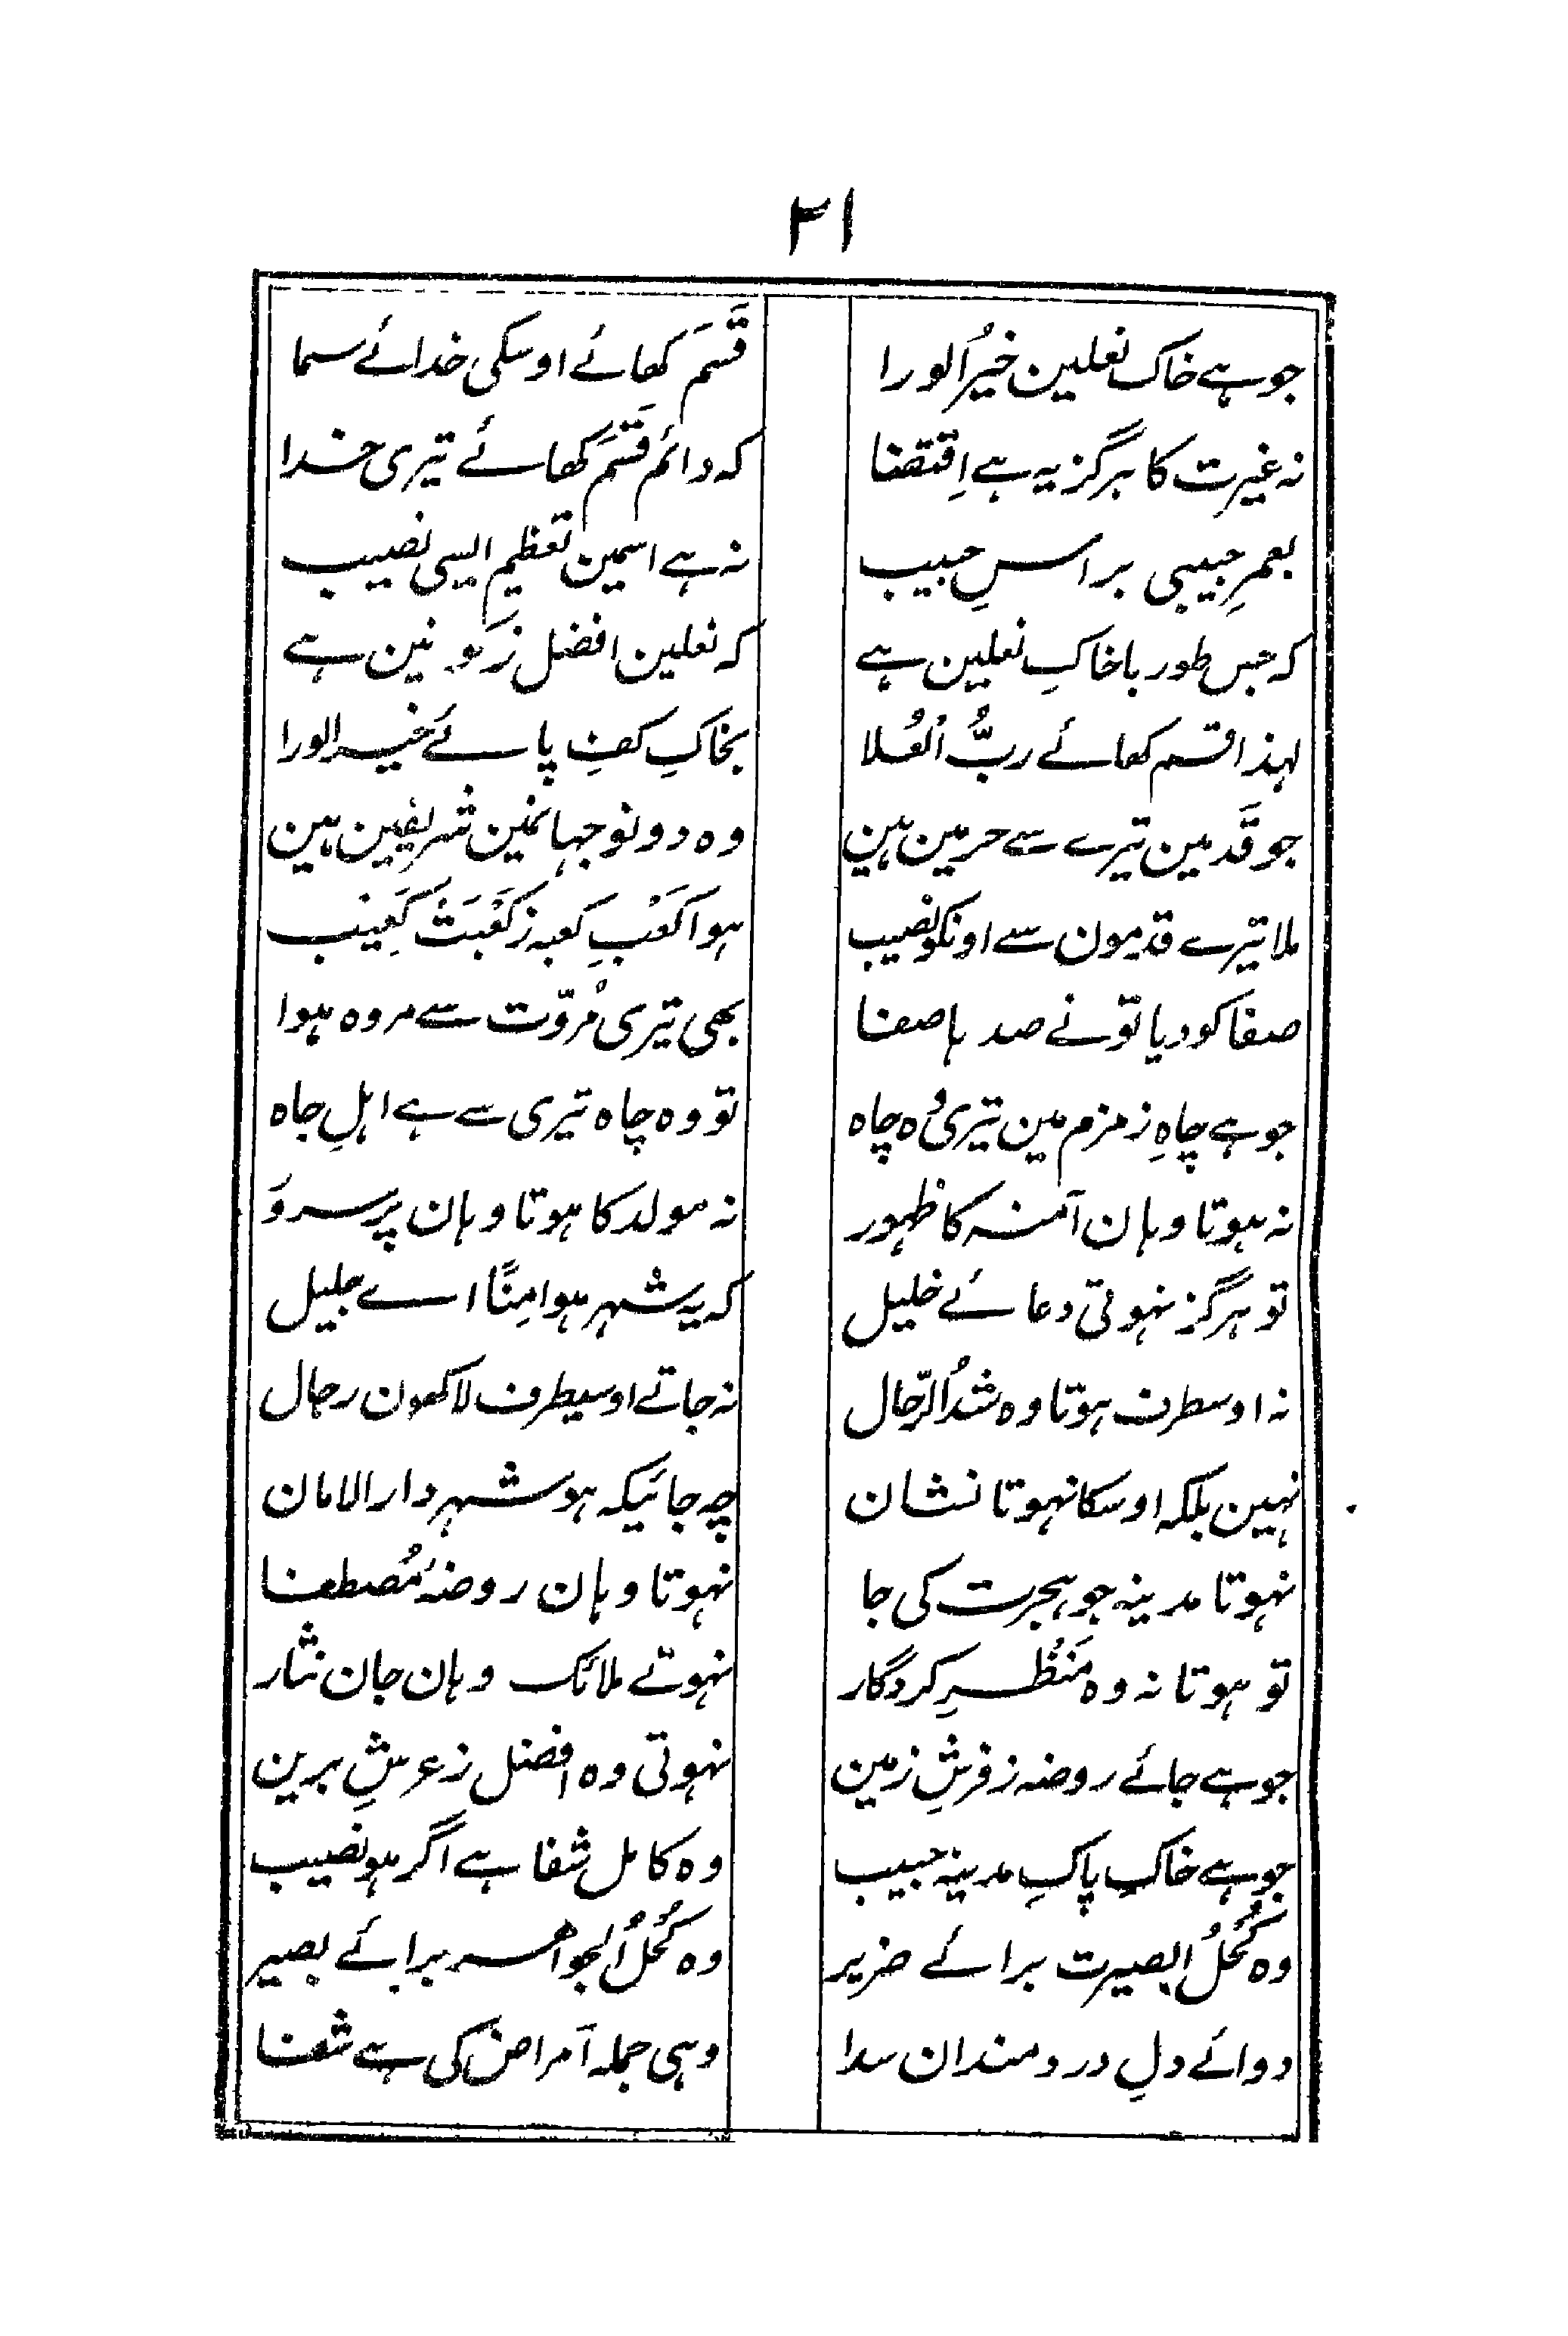 ۲۱
جو ہے خاک نعلین خیرُ الورا قَسَم کھائے اوسکی خدائے سما
نہ غیرت کا ہرگز یہ ہے اِقتضا کہ دائم قَسَم کھائے تیری خدا
بعمرِ حبیبی براسِ حبیب نہ ہے اسمین تعظیم ایسی نصیب
کہ جس طور با خاکِ نعلین ہے کہ نعلین افضل زکَونین ہے
لہذا قسم کھائے ربُّ الْعُلا بخاکِ کفِ پائے خیر الورا
جو قَدمین تیرے سے حرمین ہین وہ دونو جہانمین شریفین ہین
ملا تیرے قدمون سے اونکو نصیب ہوا کَعْبِ کعبہ زکَعْبَتْ کَعِیب
صفا کو دیا تو نے صدہا صفا بھی تیری مُروّت سے مروہ ہوا
جو ہے چاہِ زمزم مین تیری وُہ چاہ تو وہ چاہ تیری سے ہے اہلِ جاہ
نہ ہوتا وہان آمنہ کا ظہور نہ مولد کا ہوتا وہان پر سرو
تو ہرگز نہوتی دعائے خلیل کہ یہ شہر ہو امِنًا اے جلیل
نہ اوسطرف ہوتا وہ شدُ الرّحال نہ جاتے اوسیطرف لاکھون رجال
نہین بلکہ اوسکا نہوتا نشان چہ جائیکہ ہو شہر دار الامان
نہوتا مدینہ جو ہجرت کی جا نہوتا وہان روضۂ مُصطفا
تو ہوتا نہ وہ مَنْظَرِ کردگار نہوتے ملائک وہان جان نثار
جو ہے جائے روضہ ز فرشِ زمین نہوتی وہ افضل ز عرشِ برین
جو ہے خاکِ پاکِ مدینہ حبیب وہ کامل شفا ہے اگر ہو نصیب
وہ کُحْلُ البصیرت برائے ضریر وہ کُحْلُ الْجواہر برائے بصیر
دوائے دلِ دردمندان سدا وہی جملہ اَمراض کی ہے شفا